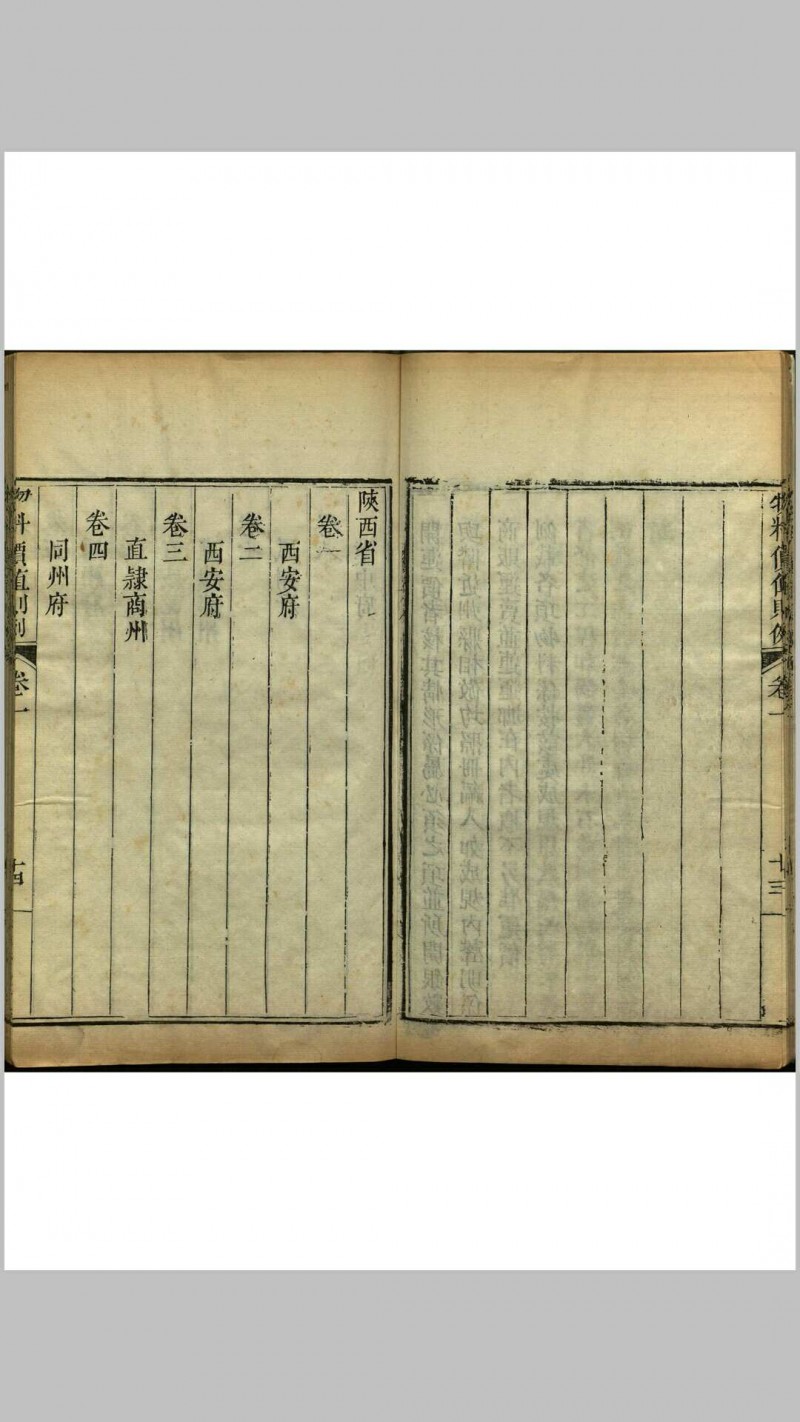 物料價值則例
卷一
十三
陝西省
卷一
西安府
卷二
西安府
卷三
直隸商州
卷四
同州府
物料價值則例
卷一
十四